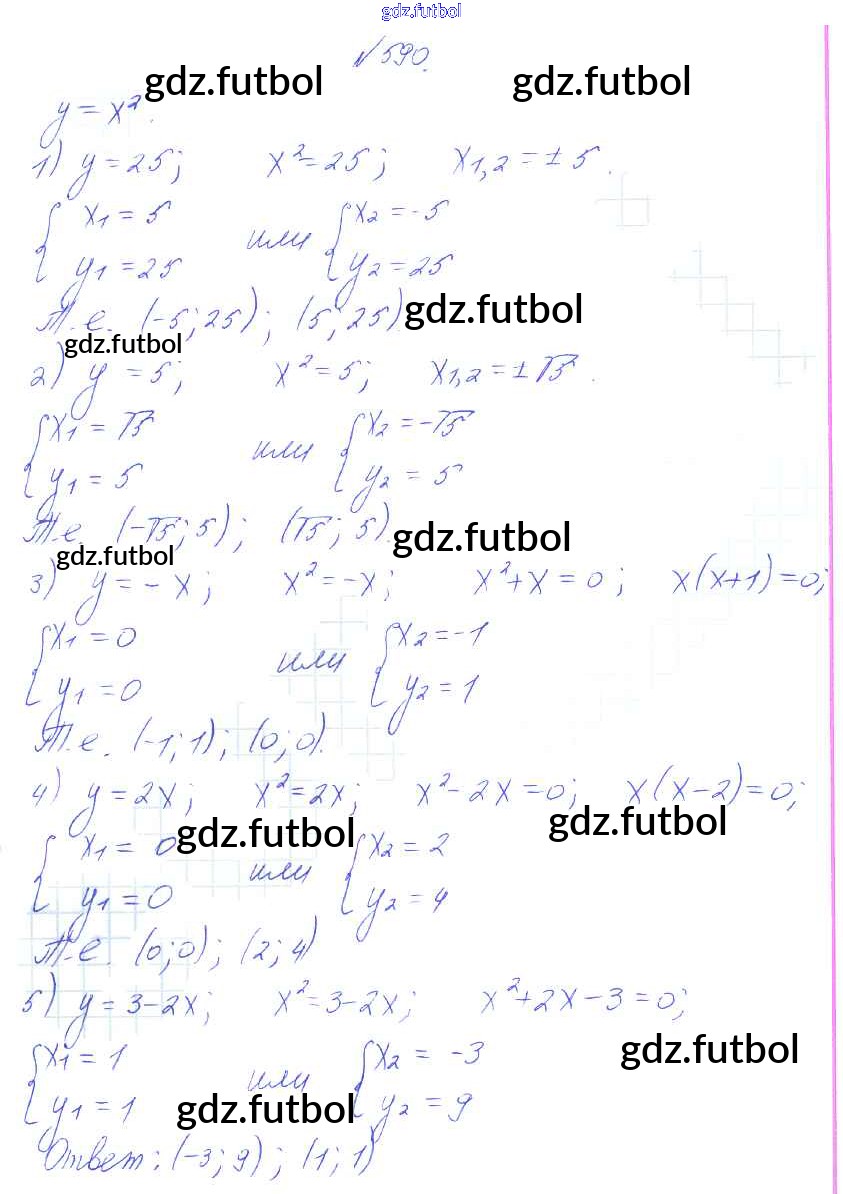 gdz.futbol
№590.
gdz.futbol gdz.futbol
y = x².
1) y = 25; x² = 25; x₁,₂ = ± 5.
{ x₁ = 5 или { x₂ = -5
{ y₁ = 25 { y₂ = 25
Т.е. (-5; 25); (5; 25) gdz.futbol
gdz.futbol
2) y = 5; x² = 5; x₁,₂ = ± √5.
{ x₁ = √5 или { x₂ = -√5
{ y₁ = 5 { y₂ = 5
Т.е. (-√5; 5); (√5; 5). gdz.futbol
gdz.futbol
3) y = - x; x² = -x; x² + x = 0; x(x+1) = 0;
{ x₁ = 0 или { x₂ = -1
{ y₁ = 0 { y₂ = 1
Т.е. (-1; 1); (0; 0).
4) y = 2x; x² = 2x; x² - 2x = 0; x(x-2) = 0;
gdz.futbol gdz.futbol
{ x₁ = 0 или { x₂ = 2
{ y₁ = 0 { y₂ = 4
Т.е. (0; 0); (2; 4)
5) y = 3-2x; x² = 3-2x; x² + 2x - 3 = 0;
{ x₁ = 1 или { x₂ = -3 gdz.futbol
{ y₁ = 1 gdz.futbol { y₂ = 9
Ответ: (-3; 9); (1; 1)